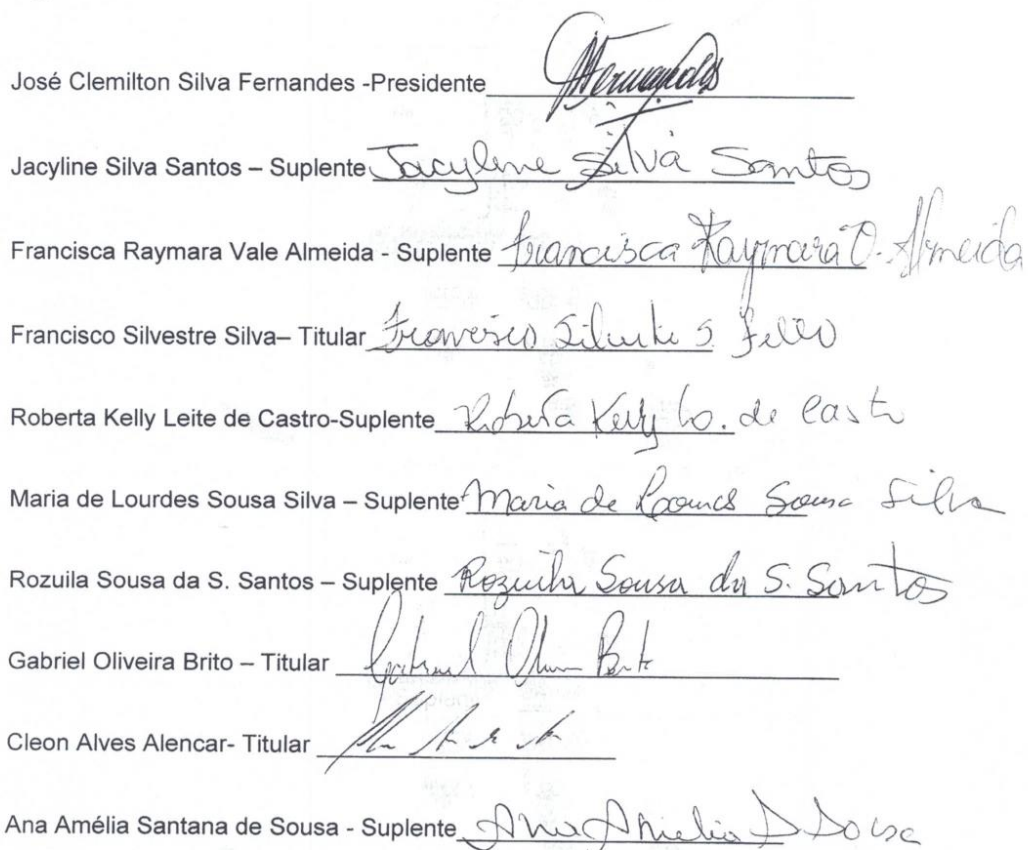 José Clemilton Silva Fernandes -Presidente
Jacyline Silva Santos – Suplente Jacylene Silva Santos
Francisca Raymara Vale Almeida - Suplente Francisca Raymara V. Almeida
Francisco Silvestre Silva– Titular Francisco S.
Roberta Kelly Leite de Castro-Suplente Roberta Kelly de Castro
Maria de Lourdes Sousa Silva – Suplente Maria de Sousa Silva
Rozuila Sousa da S. Santos – Suplente Rozuila Sousa da S. Santos
Gabriel Oliveira Brito – Titular Gabriel Brito
Cleon Alves Alencar- Titular
Ana Amélia Santana de Sousa - Suplente Ana Amélia S Sousa